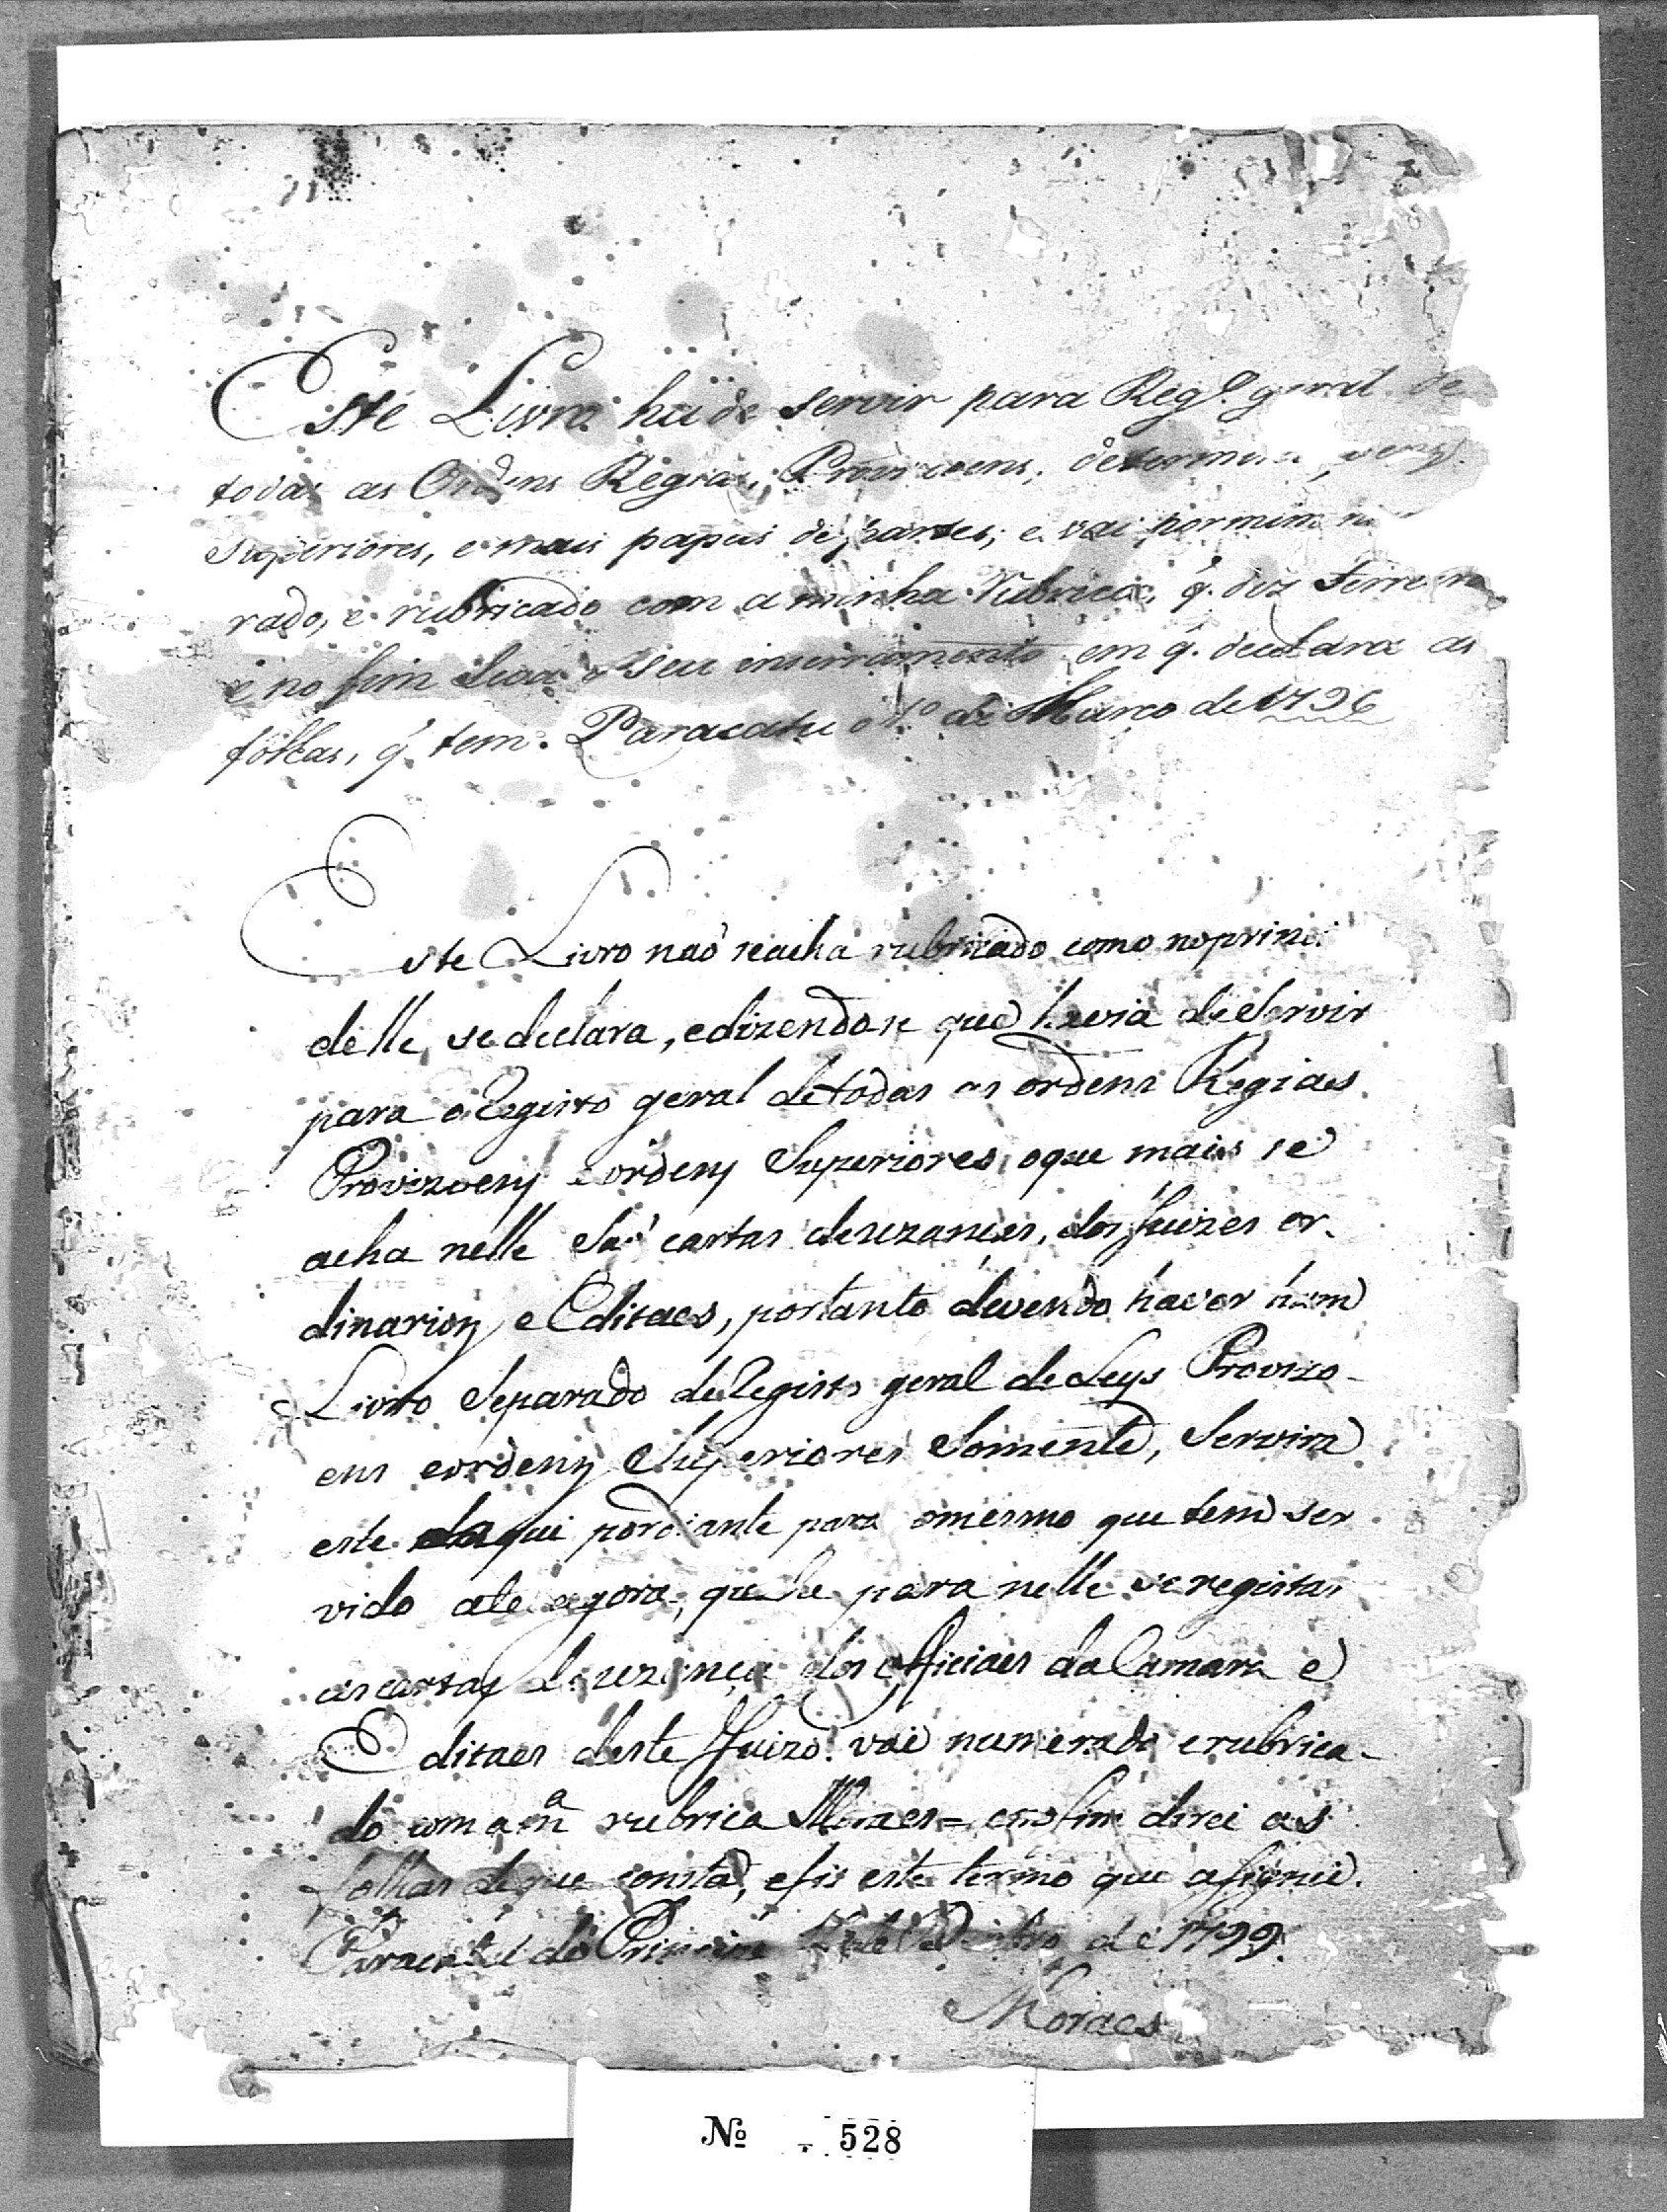 Este Livro ha de servir para Reg.º geral de
todas as Ordens Regias, Provizoens,
Superiores, e mais papeis de partes; e vai por mim
rado, e rubricado com a minha rubrica, q. diz Ferreira
e no fim leva o seu inserramento em q. declara as
folhas, q. tem. Paracatu de Março de 1796
Este Livro naõ seacha rubricado como noprinci
delle, se declara, edizendose que havia deServir
para oRegisto geral detodas as ordens Regias
Provizoens e ordens Superiores, oque mais se
acha nelle Saõ cartas deuzanças, dos Juizes or-
dinarios, e Editaes, portanto devendo haver hum
Livro Separado deRegisto geral de Leys Provizo-
ens eordens Superiores Somente, Servira
este daqui pordiante para omesmo que tem ser
vido ate agora, que he para nelle se registar
as cartas de uzança dos officiaes da Camara e
Editaes deste Juizo. vai numerado erubrica-
do com a m.ª rubrica Moraes = enofim direi as
folhas deque consta, efis este termo que asignei.
Paracatu do Principe de 1799.
Moraes
Nº 528